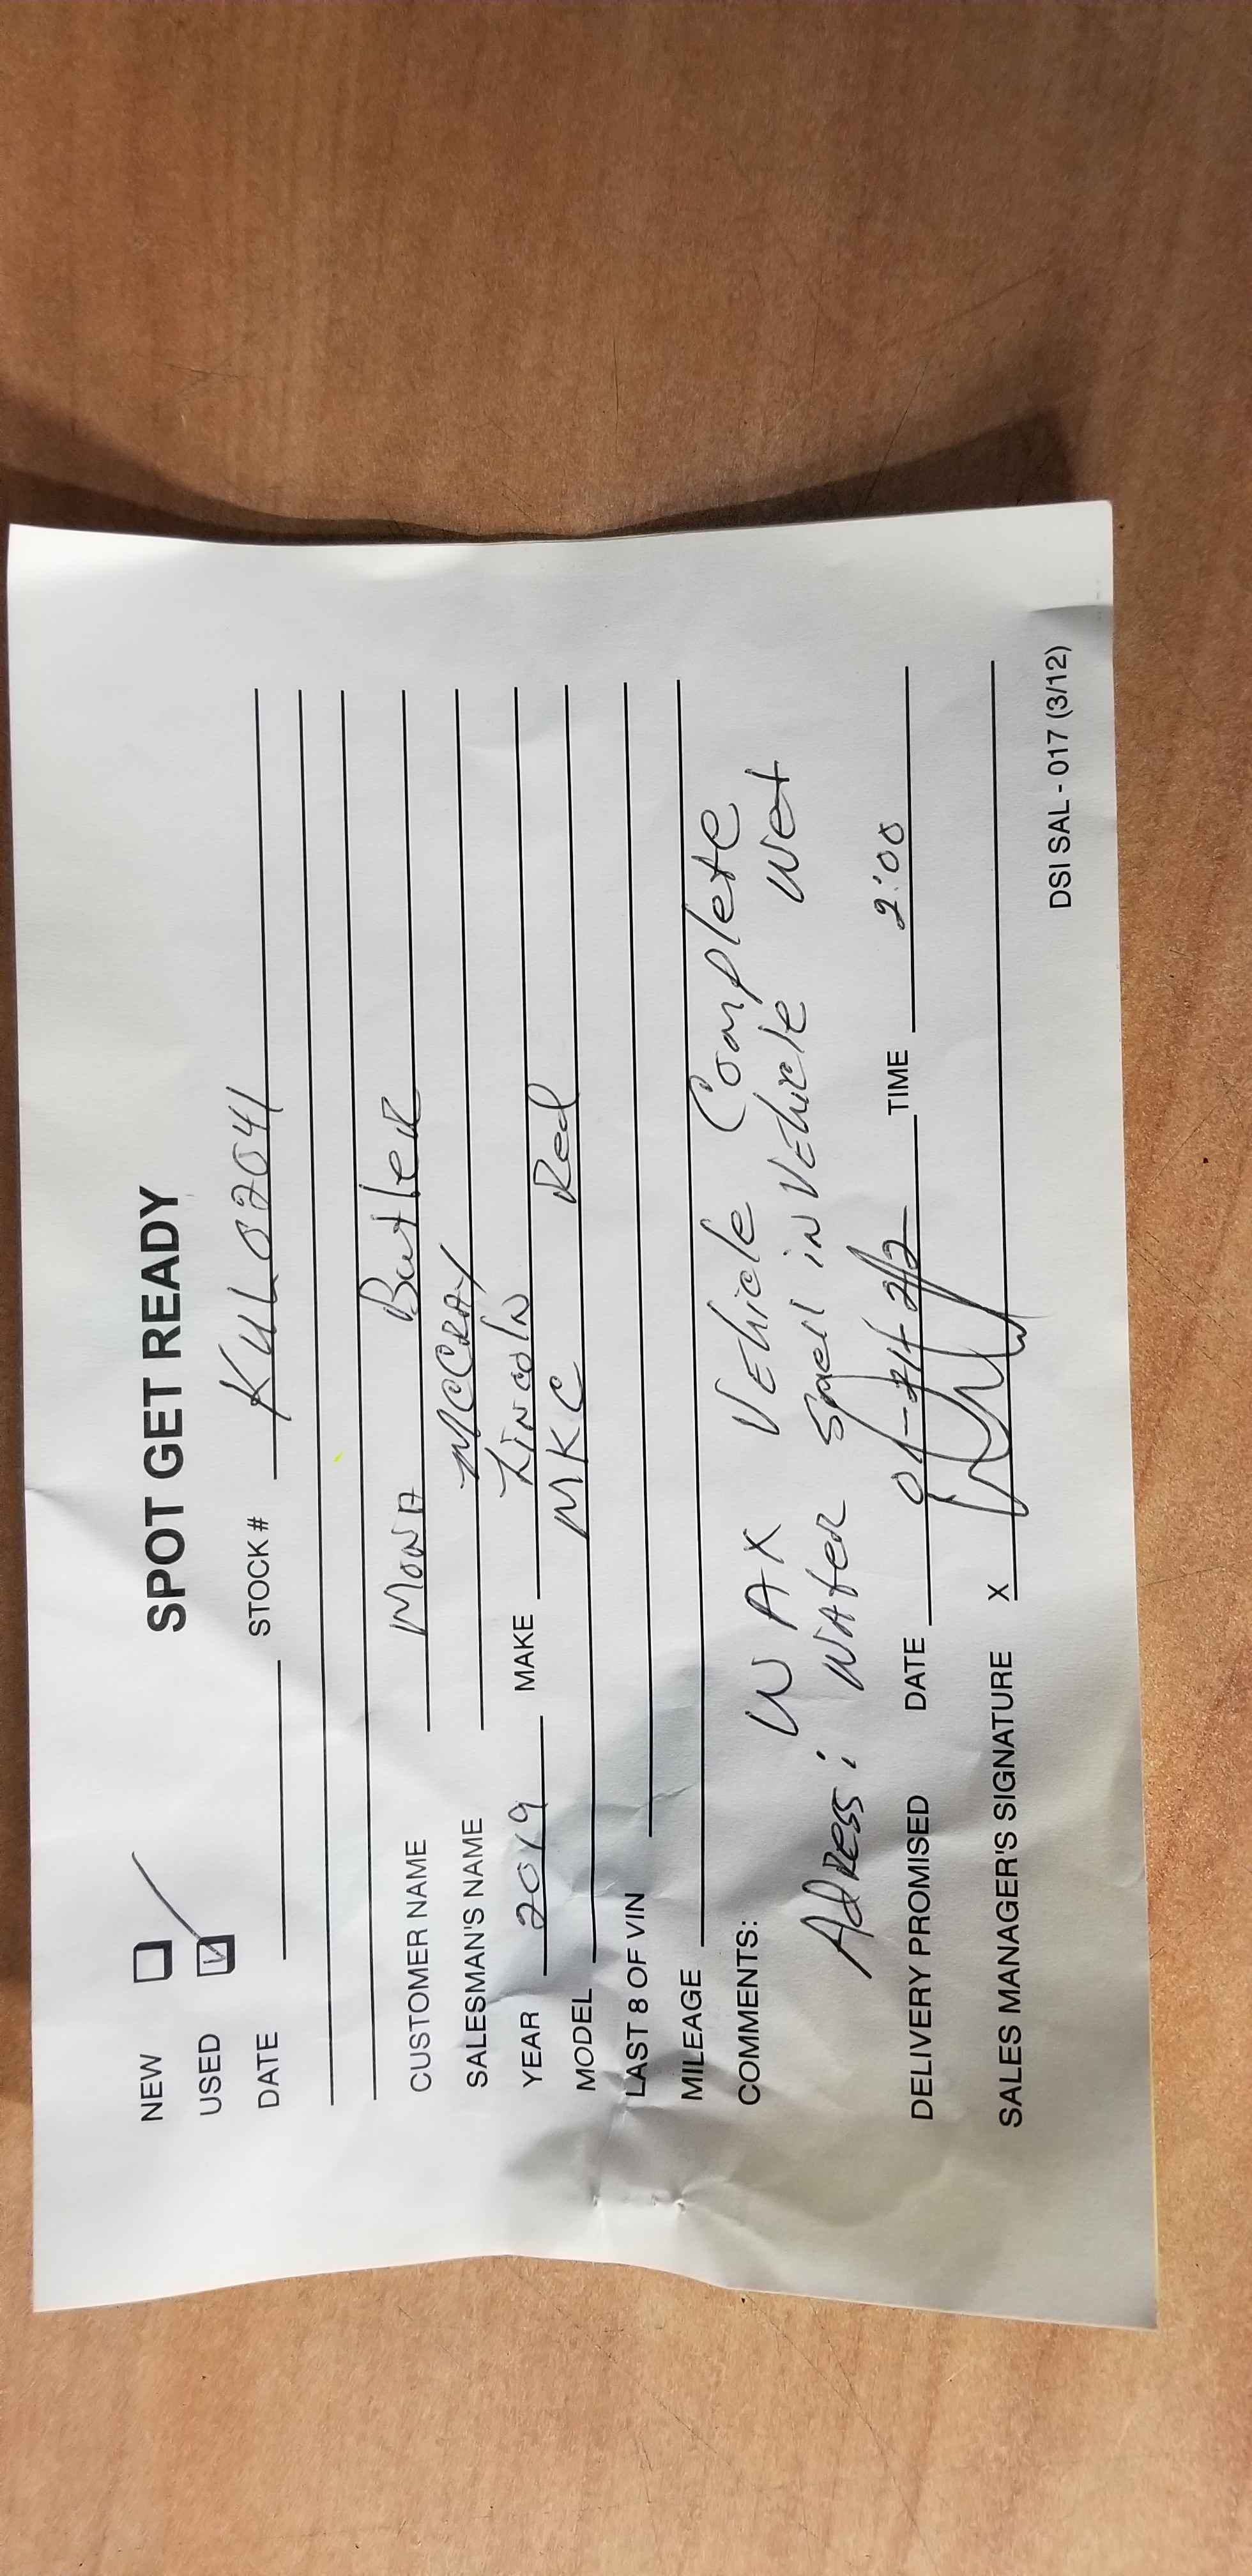 SPOT GET READY
NEW
USED
DATE STOCK # KUL02041
CUSTOMER NAME MONA Butler
SALESMAN'S NAME McCRAY
YEAR 2019 MAKE Lincoln
MODEL MKC Red
LAST 8 OF VIN
MILEAGE
COMMENTS: WAX Vehicle Complete
Address: Water Smell in Vehicle Wet
DELIVERY PROMISED DATE TIME 2:00
SALES MANAGER'S SIGNATURE X
DSI SAL - 017 (3/12)